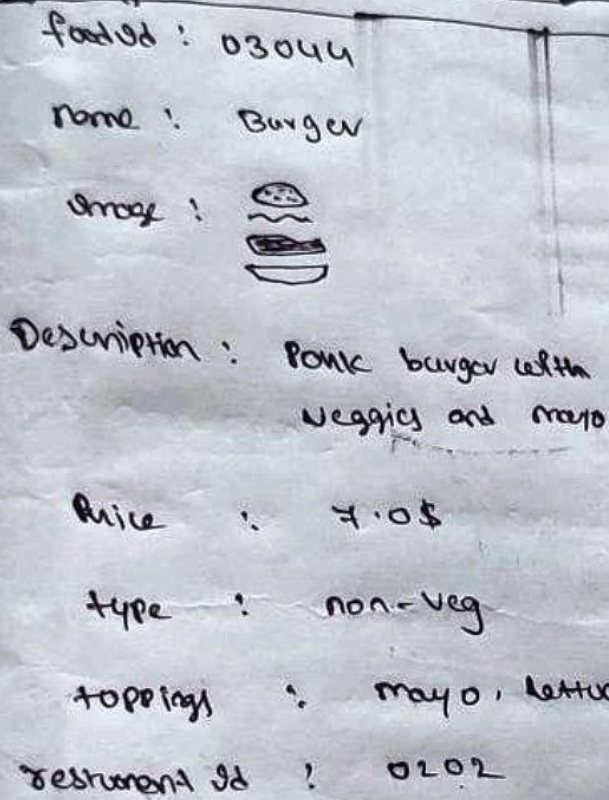 foodId : 03044
name : Burger
image :
Description : Pork burger with
veggies and mayo
Price : 7.0$
type : non-veg
toppings : mayo, lettu
resturant Id : 0202